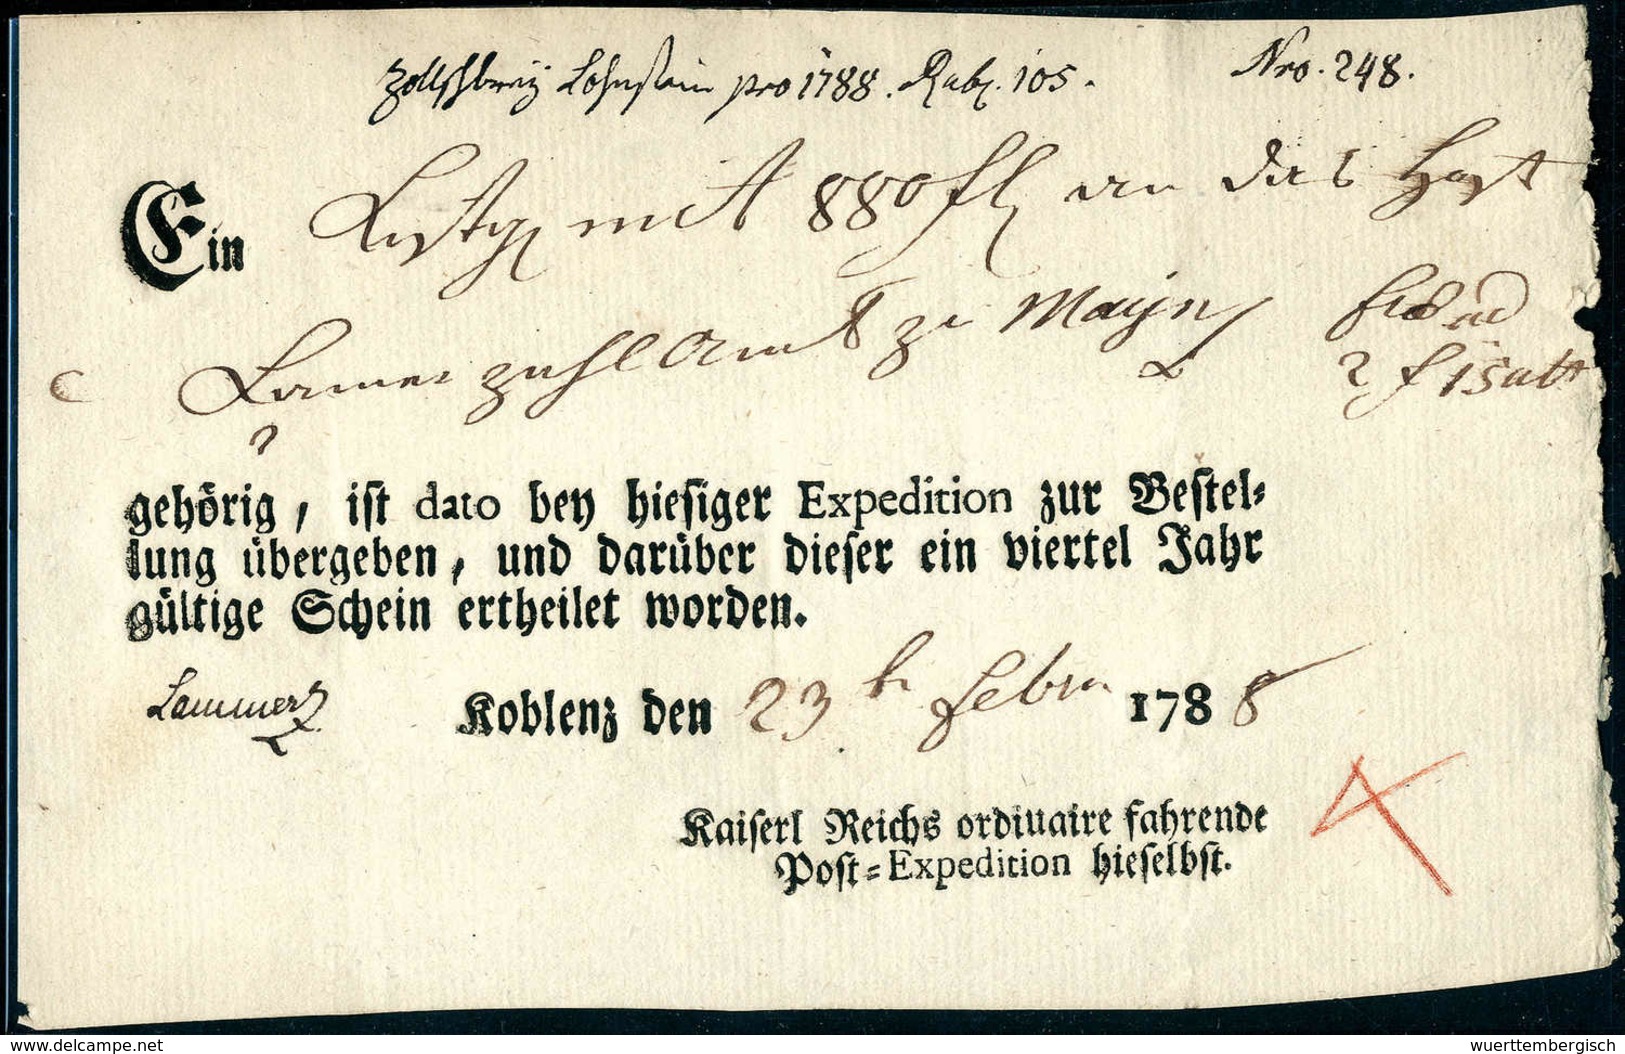 Zollschbrey Lohnstein pro 1788. Rubr. 105. Nro. 248.
Ein mit 880 fl an das
zahl Amt zu Maynz
2 f 15
gehörig, ist dato bey hiesiger Expedition zur Bestel-
lung übergeben, und darüber dieser ein viertel Jahr
gültige Schein ertheilet worden.
Lammerz Koblenz den 23 febru 1788
Kaiserl Reichs ordinaire fahrende
Post-Expedition hieselbst.
www.delcampe.net
wuerttembergisch